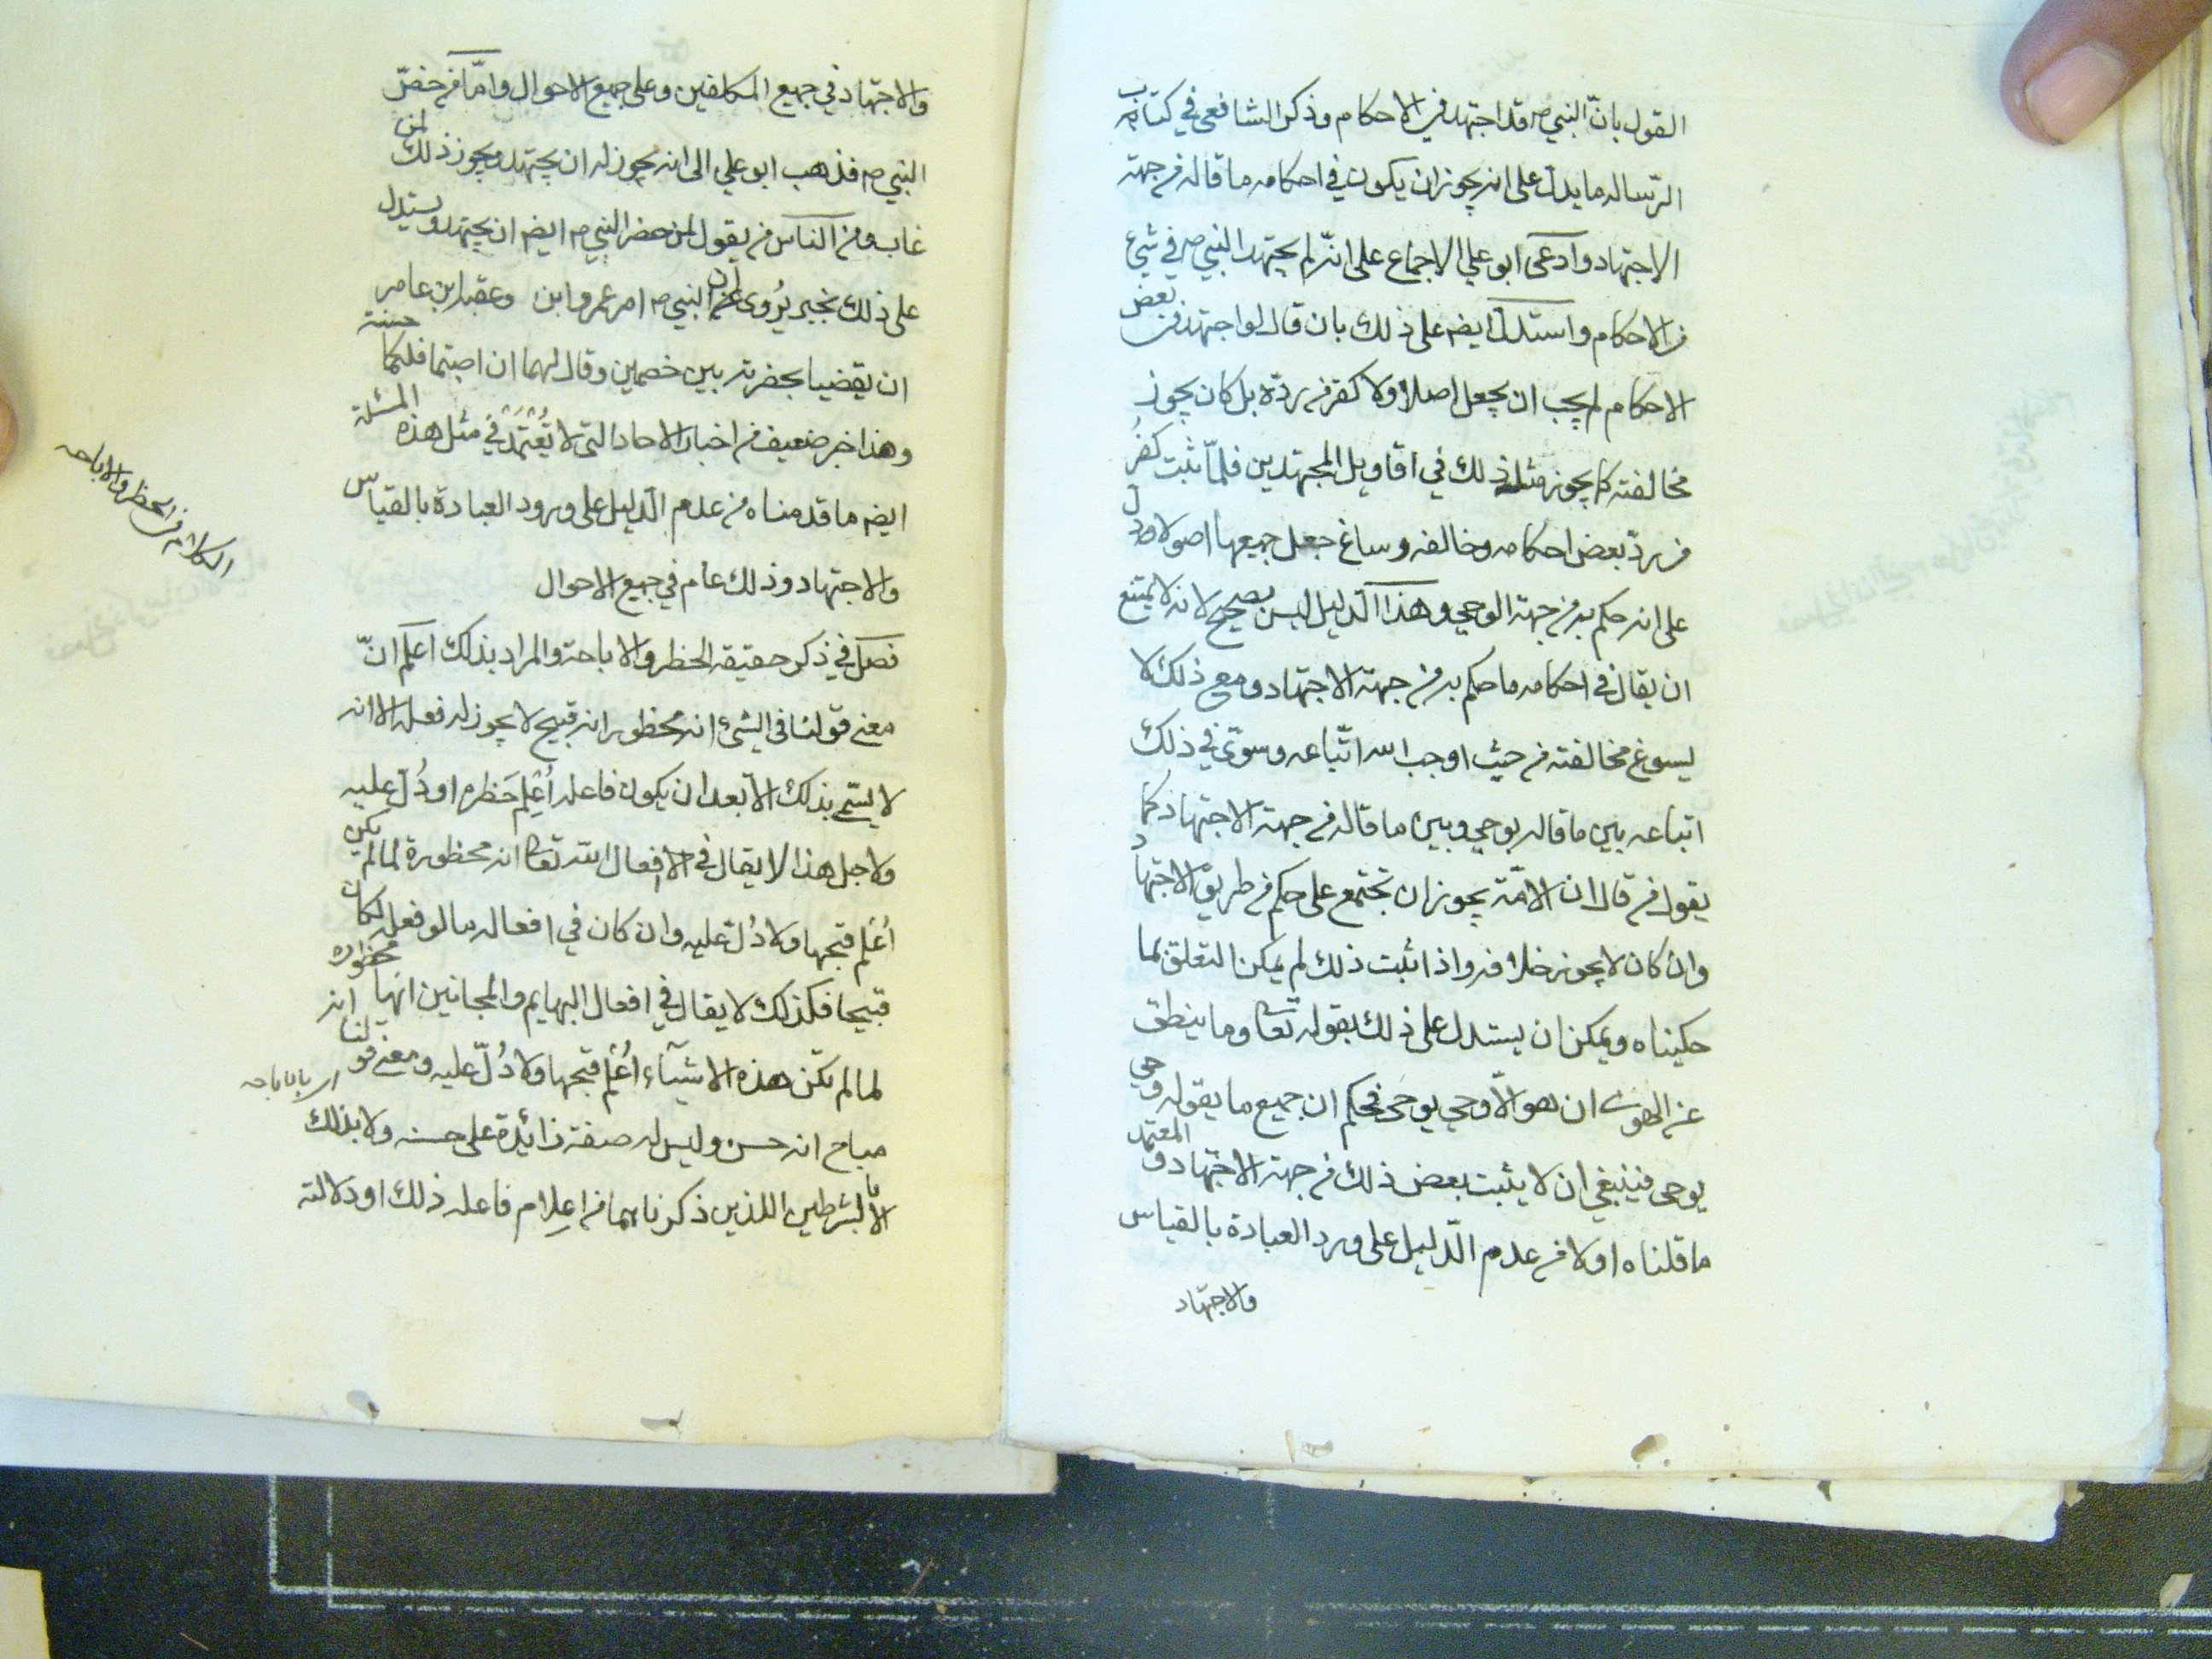 القول بانّ النبي ص قد اجتهد في الاحكام وذكر الشافعي في كتاب
الرّساله ما يدلّ على انه يجوز ان يكون في احكامه ما قاله من جهة
الاجتهاد وادعى ابو علي الاجماع على انّه لم يجتهد النبي ص في شيئ
من الاحكام واستدلّ ايضه على ذلك بان قال لو اجتهد في بعض
الاحكام لم يجب ان يجعل اصلا ولا كفر من ردّه بل كان يجوز
مخالفته كما يجوز مثل ذلك في اقاويل المجتهدين فلمّا ثبت كفرُ
من ردّ بعض احكامه وخالفه وساغ جعل جميعها اصولا دل
على انه حكم به من جهة الوحي وهذا الدّليل ليس بصحيح لانه لا يمتنع
ان يقال في احكامه ما حكم به من جهة الاجتهاد ومع ذلك لا
يسوغ مخالفته من حيث اوجب الله اتّباعه وسوّى في ذلك
اتباعه بين ما قاله بوحي وبين ما قاله من جهة الاجتهاد كما
يقول من قال ان الامّة يجوز ان تجتمع على حكم من طريق الاجتهاد
وان كان لا يجوز خلافه واذا ثبت ذلك لم يمكن التعلق بما
حكيناه ويمكن ان يستدل على ذلك بقوله تعا وما ينطق
عن الهوى ان هو الّا وحي يوحى فحكم ان جميع ما يقوله وحي
يوحى فينبغي ان لا يثبت بعض ذلك من جهة الاجتهاد والمعتمد
ما قلناه اولا من عدم الدّليل على ورد العبادة بالقياس
والاجتهاد
والاجتهاد في جميع المكلفين وعلى جميع الاحوال وامّا من حضر
النبي ص فذهب ابو علي الى انه يجوز له ان يجتهد ويجوز ذلك لمن
غاب ومن الناس من يقول لمن حضر النبي ص ايضه ان يجتهد ويستدل
على ذلك بخبر يُروى ان النبي ص امر عمرو ابن وعقبه ابن عامر
ان يقضيا بحضرته بين خصمين وقال لهما ان اصبتما فلكما حسنة
وهذا خبر ضعيف من اخبار الاحاد التى لا تُعْتَمَدُ في مثل هذه المسئلة
ايضه ما قدمناه من عدم الدّليل على ورود العبادة بالقياس
والاجتهاد وذلك عام في جميع الاحوال
فصل في ذكر حقيقه الحظر والاباحة والمراد بذلك اعلم انّ
معنى قولنا في الشئ انه محظور انه قبيح لا يجوز له فعله الا انه
لا يسمّى بذلك الّا بعد ان يكون فاعله اُعْلِم حَظره او دُلّ عليه
ولاجل هذا لا يقال في الافعال الله تعا انه محظورة لما لم يكن
اُعْلم قبحها ولا دُلّ عليه وان كان في افعاله ما لو فعله لكان
قبيحا فكذلك لا يقال في افعال البهايم والمجانين انها محظوره
لما لم تكن هذه الاشيآء اُعْلم قبحها ولا دُلّ عليه ومعنى قولنا انه
مباح انه حسن وليس له صفة زائدة على حسنه ولا بذلك
الا بالشرطين اللذين ذكرناهما من اعلام فاعله ذلك او دلالته
الكلام في الحظر والاباحه